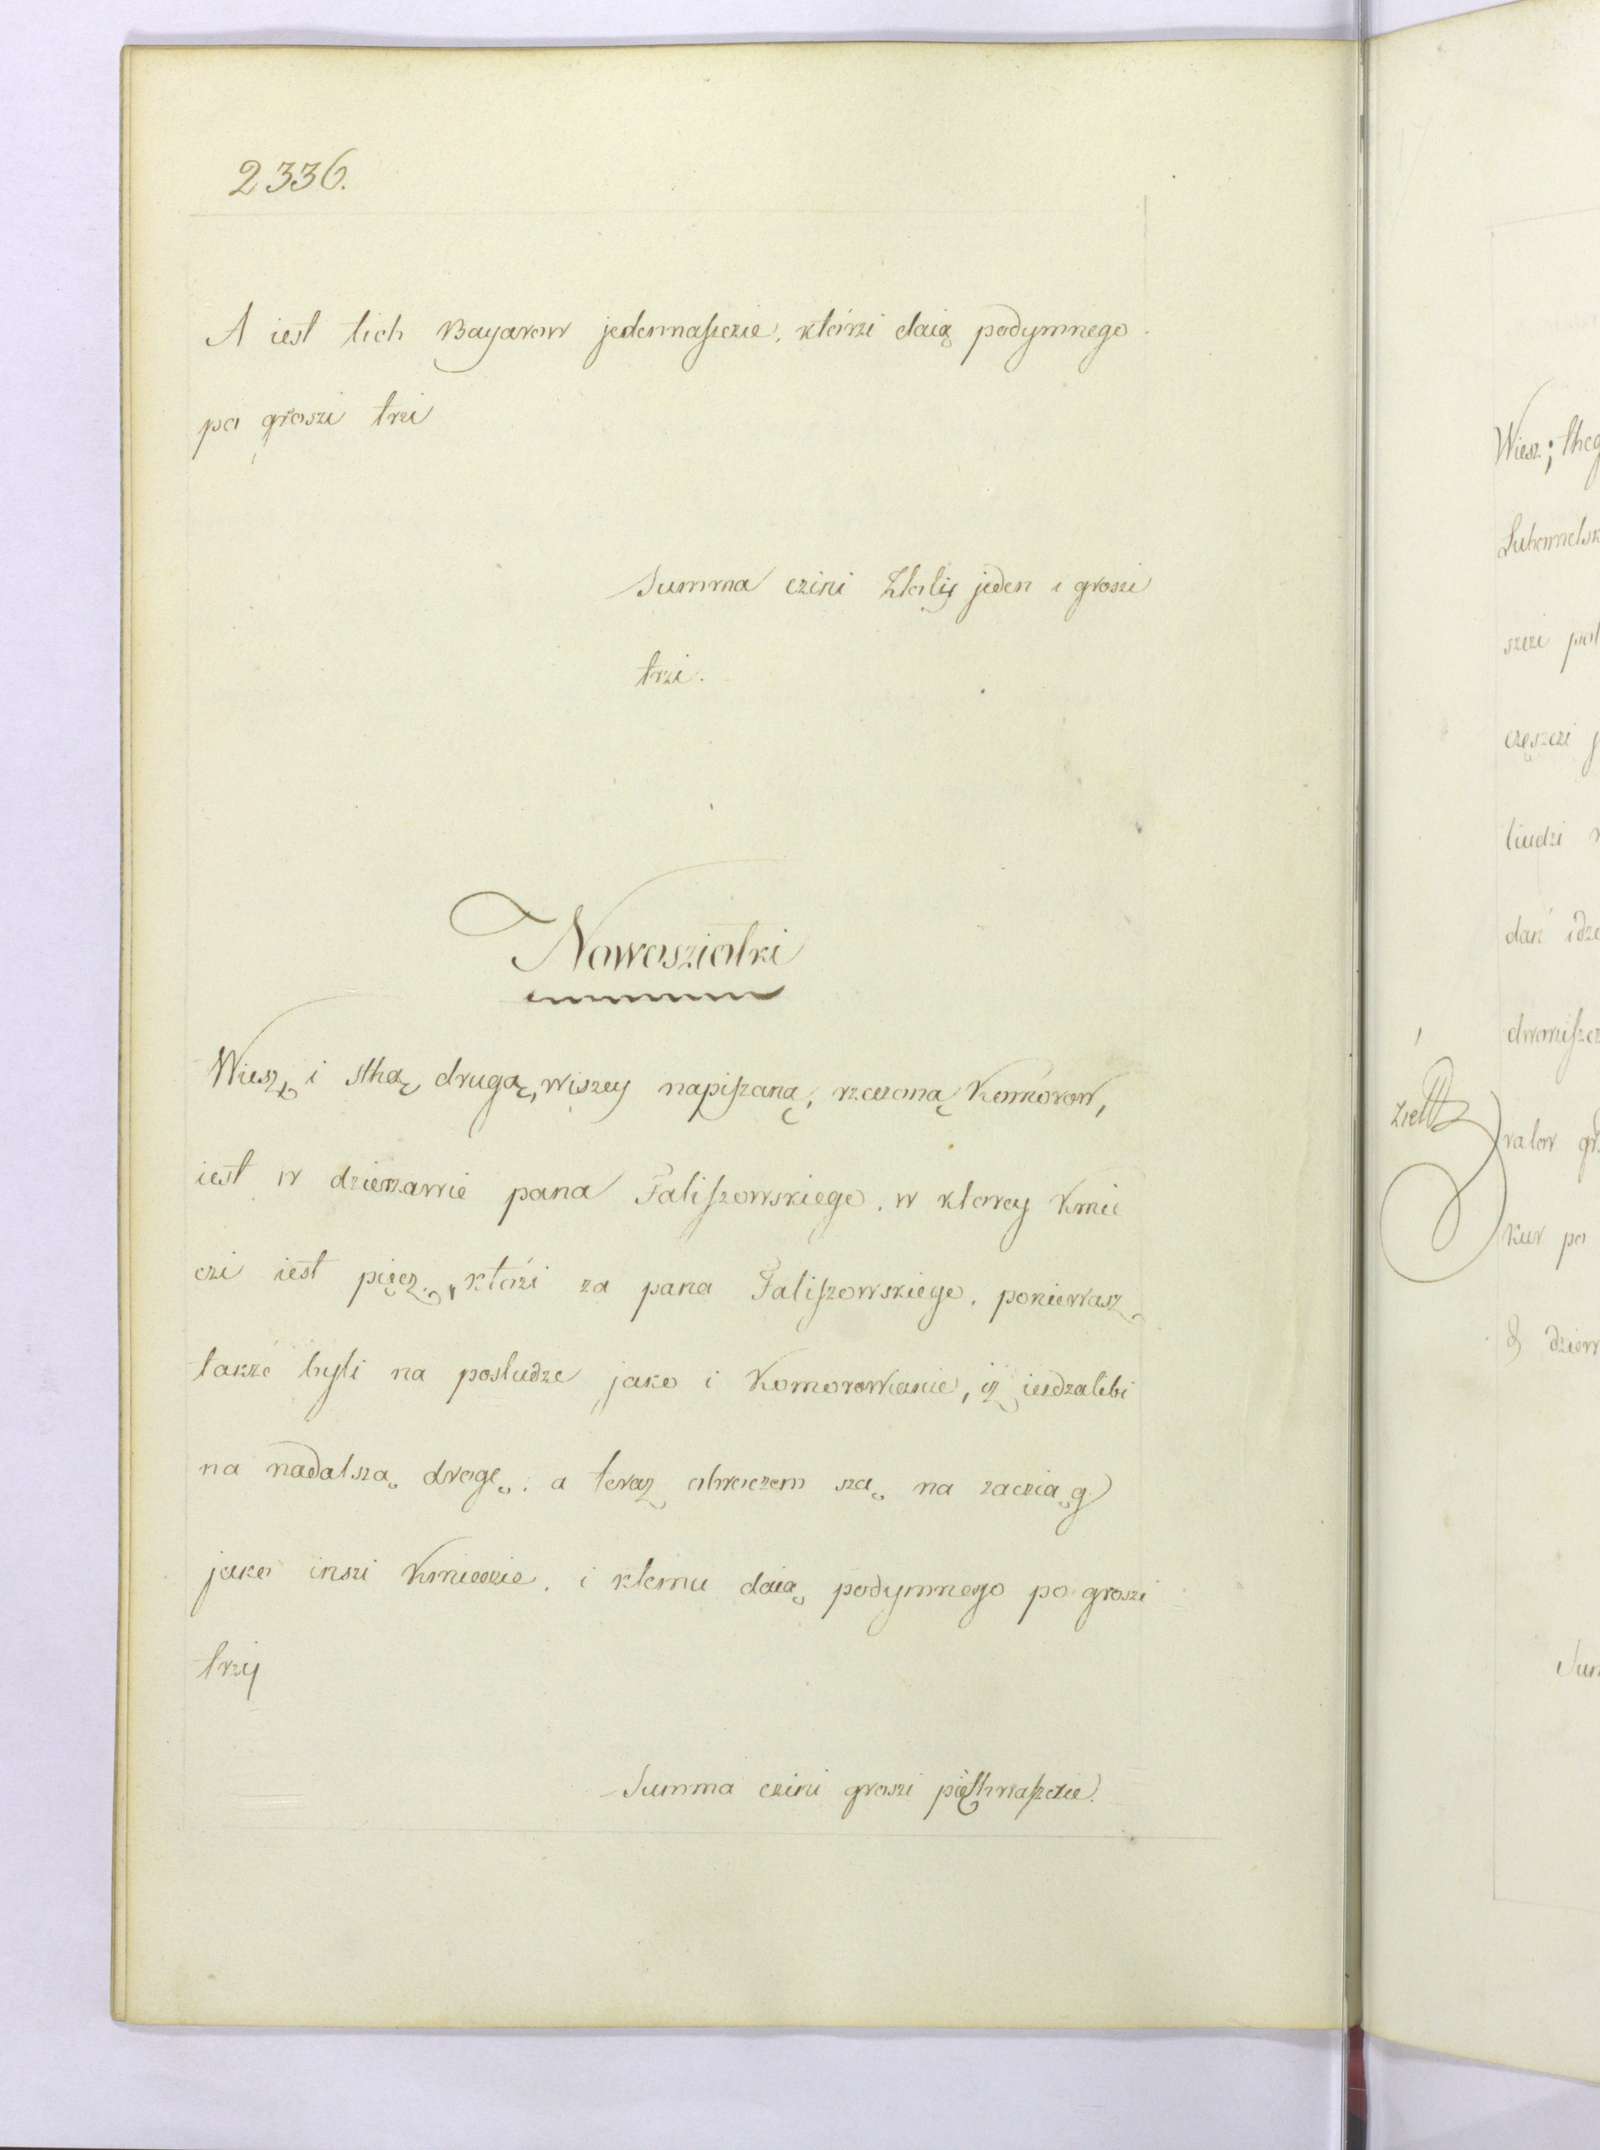 2336.
A iest tich Bayarow jedennaſzczie, ktorzi daią podymnego
po groszi trzi
Summa czini Złoty jeden i groszi
trzi.
Nowosziolki
Wiesz i sthą drugą, wiszey napiſzaną, rzeczoną Komorow,
iest w dzierzawie pana Faliſzowskiego, w ktorey Kmie
czi iest pięcz, ktorzi za pana Faliſzowskiego, poniewasz
takze byli na posludze jako i Komorowianie, iż iesdzalibi
na nadalszą drogę, a teraz obroczem szą na zacziąg
jako inszi Kmieczie, i ktemu daią podymnego po groszi
trzy
Summa czini groszi pięthnaſzczie.
Wiesz; theg
Lubomelsk
szczi pol
częszczi
liudzi
dan idze
dworziſzcz
ziell
kur po
Sum